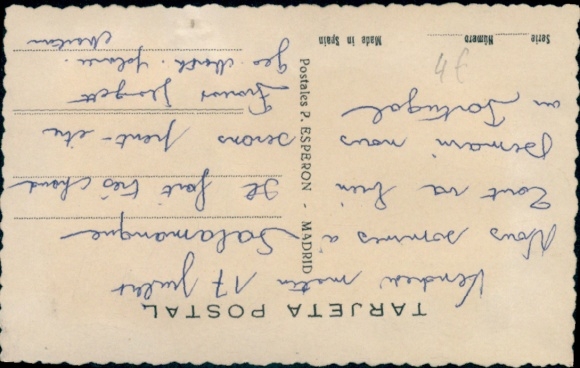 TARJETA POSTAL
Vendredi matin 17 Juillet
Nous sommes à Salamanque
Tout va bien Il fait très chaud
Demain nous serons peut-être
au Portugal
4f
Postales P. ESPERON - MADRID
Serie Número Made in Spain